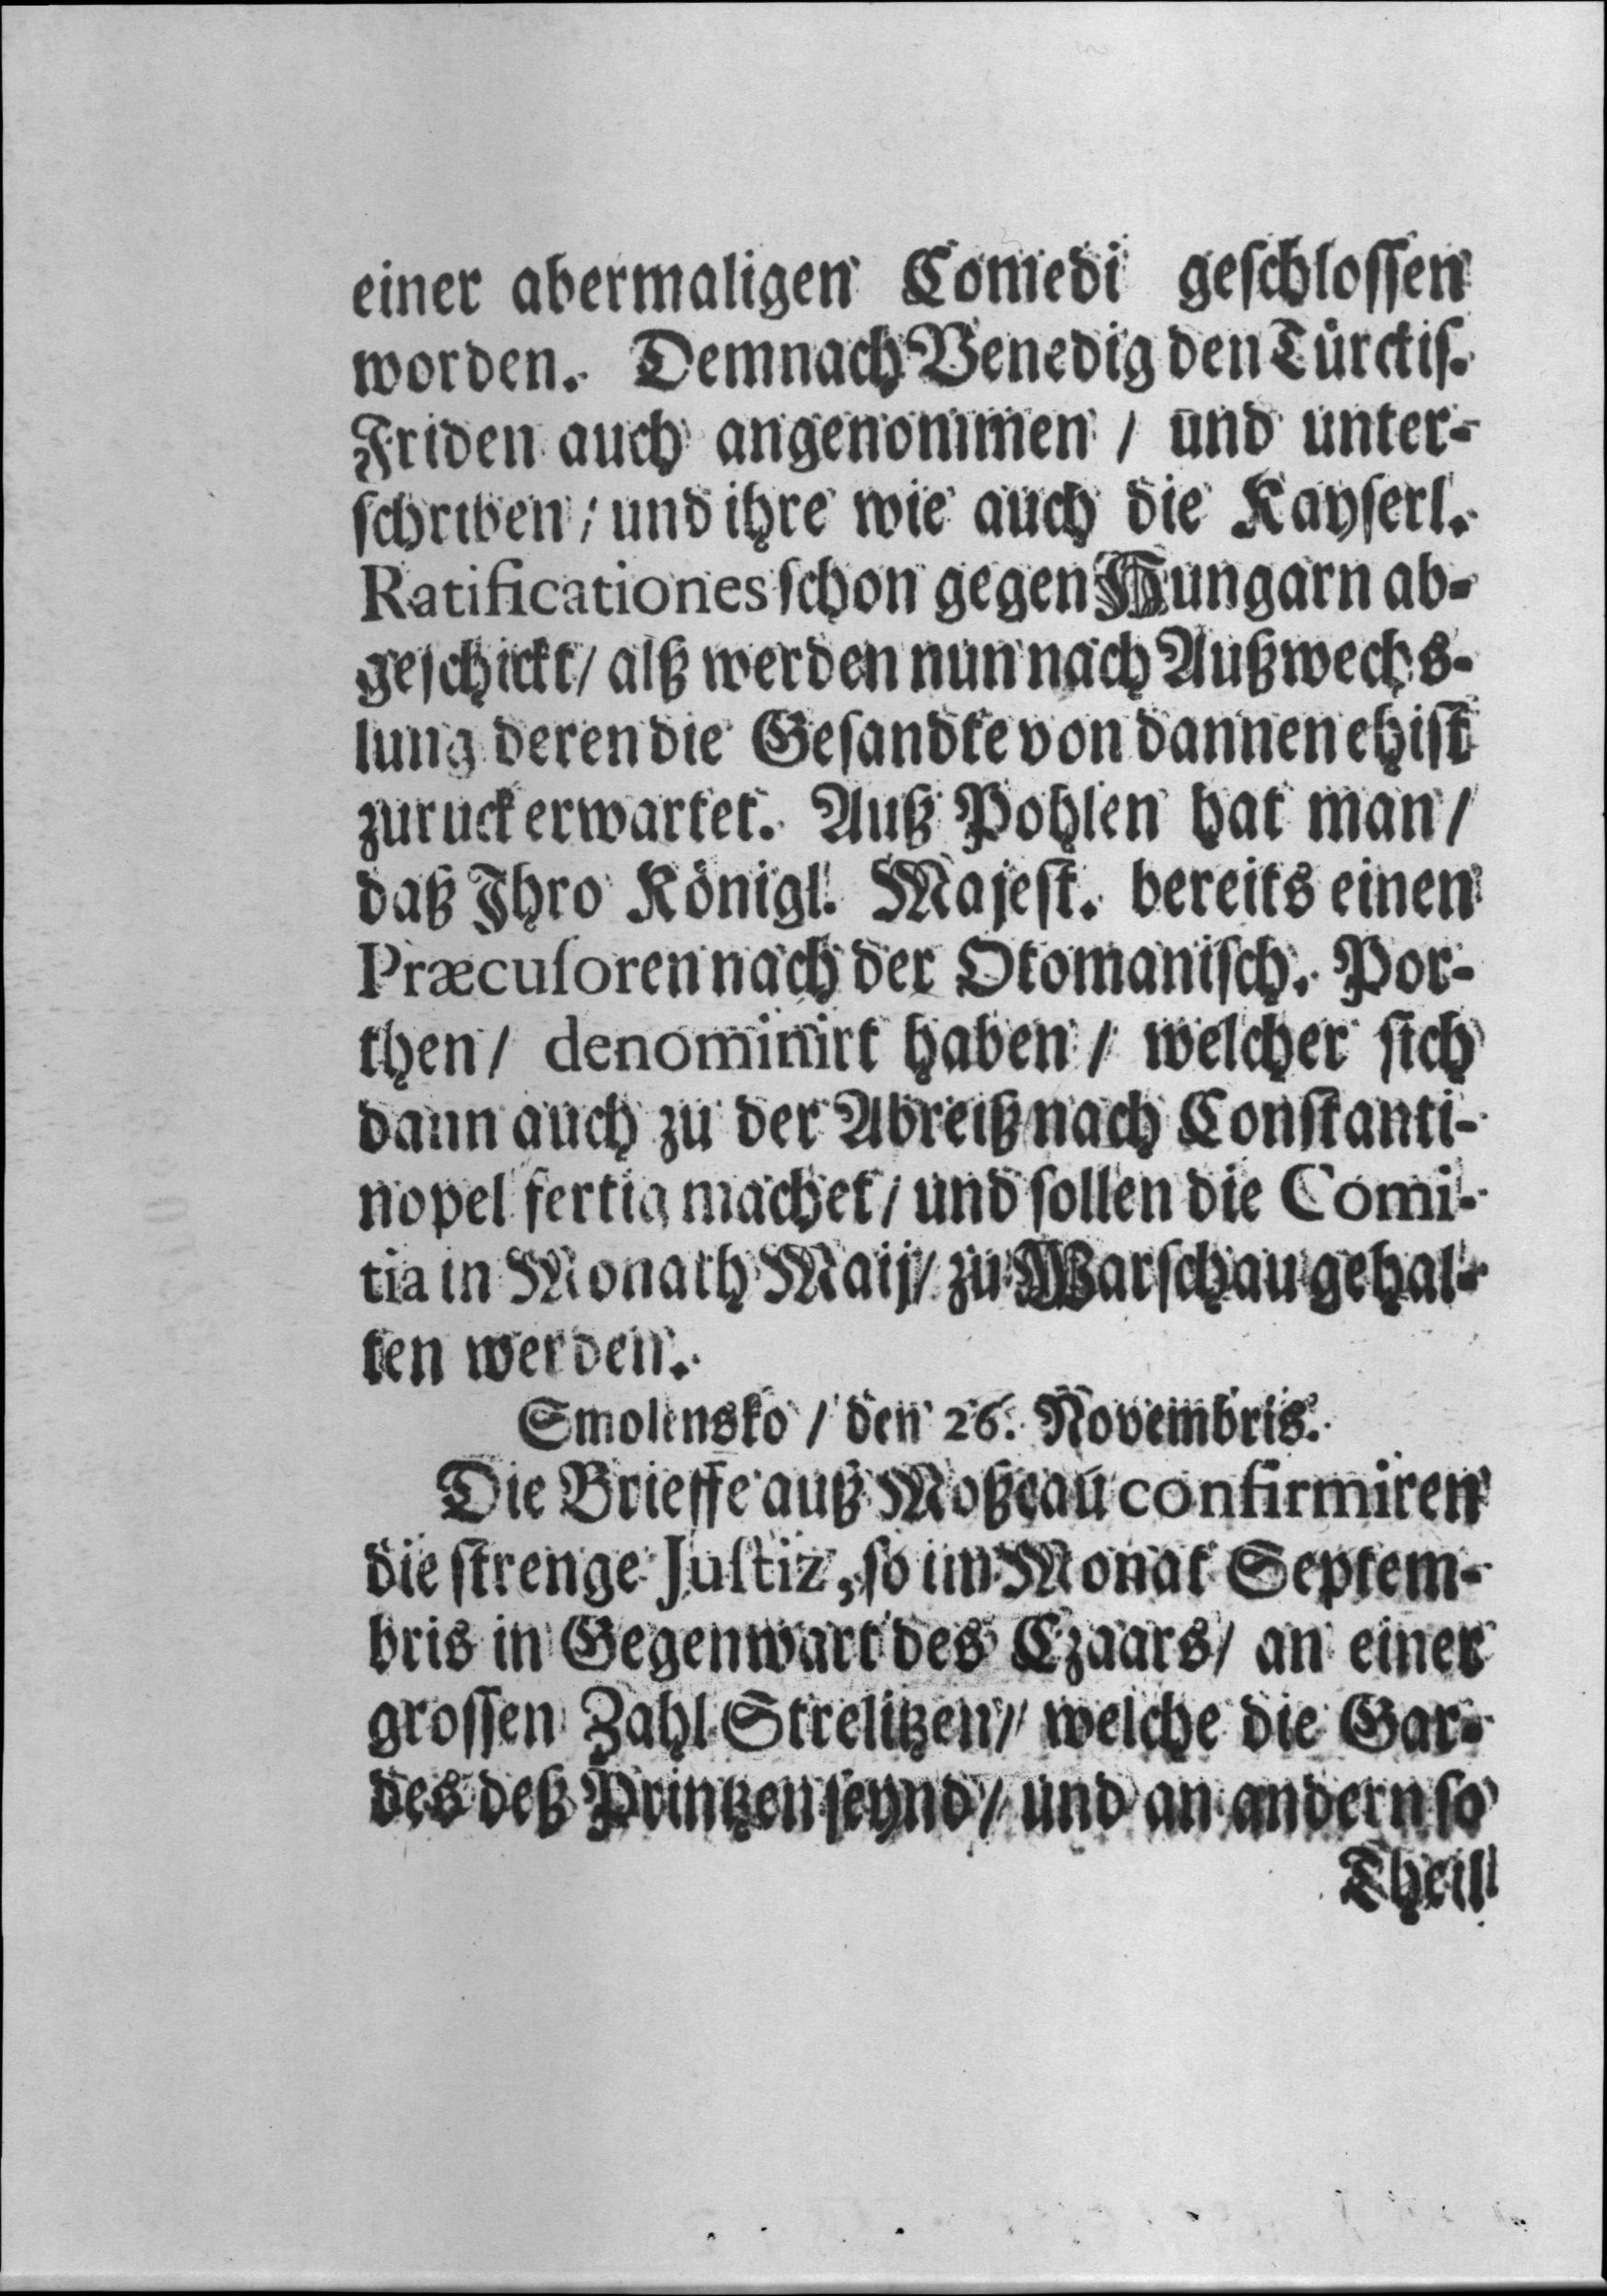 einer abermaligen Comedi geschlossen
worden. Demnach Venedig den Türckis.
Friden auch angenommen / und unter-
schriben / und ihre wie auch die Kayserl.
Ratificationes schon gegen Hungarn ab-
geschickt / alß werden nun nach Außwechs-
lung deren die Gesandte von dannen ehist
zuruck erwartet. Auß Pohlen hat man /
daß Ihro Königl. Majest. bereits einen
Præcusoren nach der Otomanisch. Por-
then / denominirt haben / welcher sich
dann auch zu der Abreiß nach Constanti-
nopel fertig machet / und sollen die Comi-
tia in Monath Maij / zu Warschau gehal-
ten werden.
Smolensko / den 26. Novembris.
Die Brieffe auß Moßcau confirmiren
die strenge Justiz, so im Monat Septem-
bris in Gegenwart des Czaars / an einer
grossen Zahl Strelitzen / welche die Gar-
des deß Printzen seynd / und an andern so
Theil